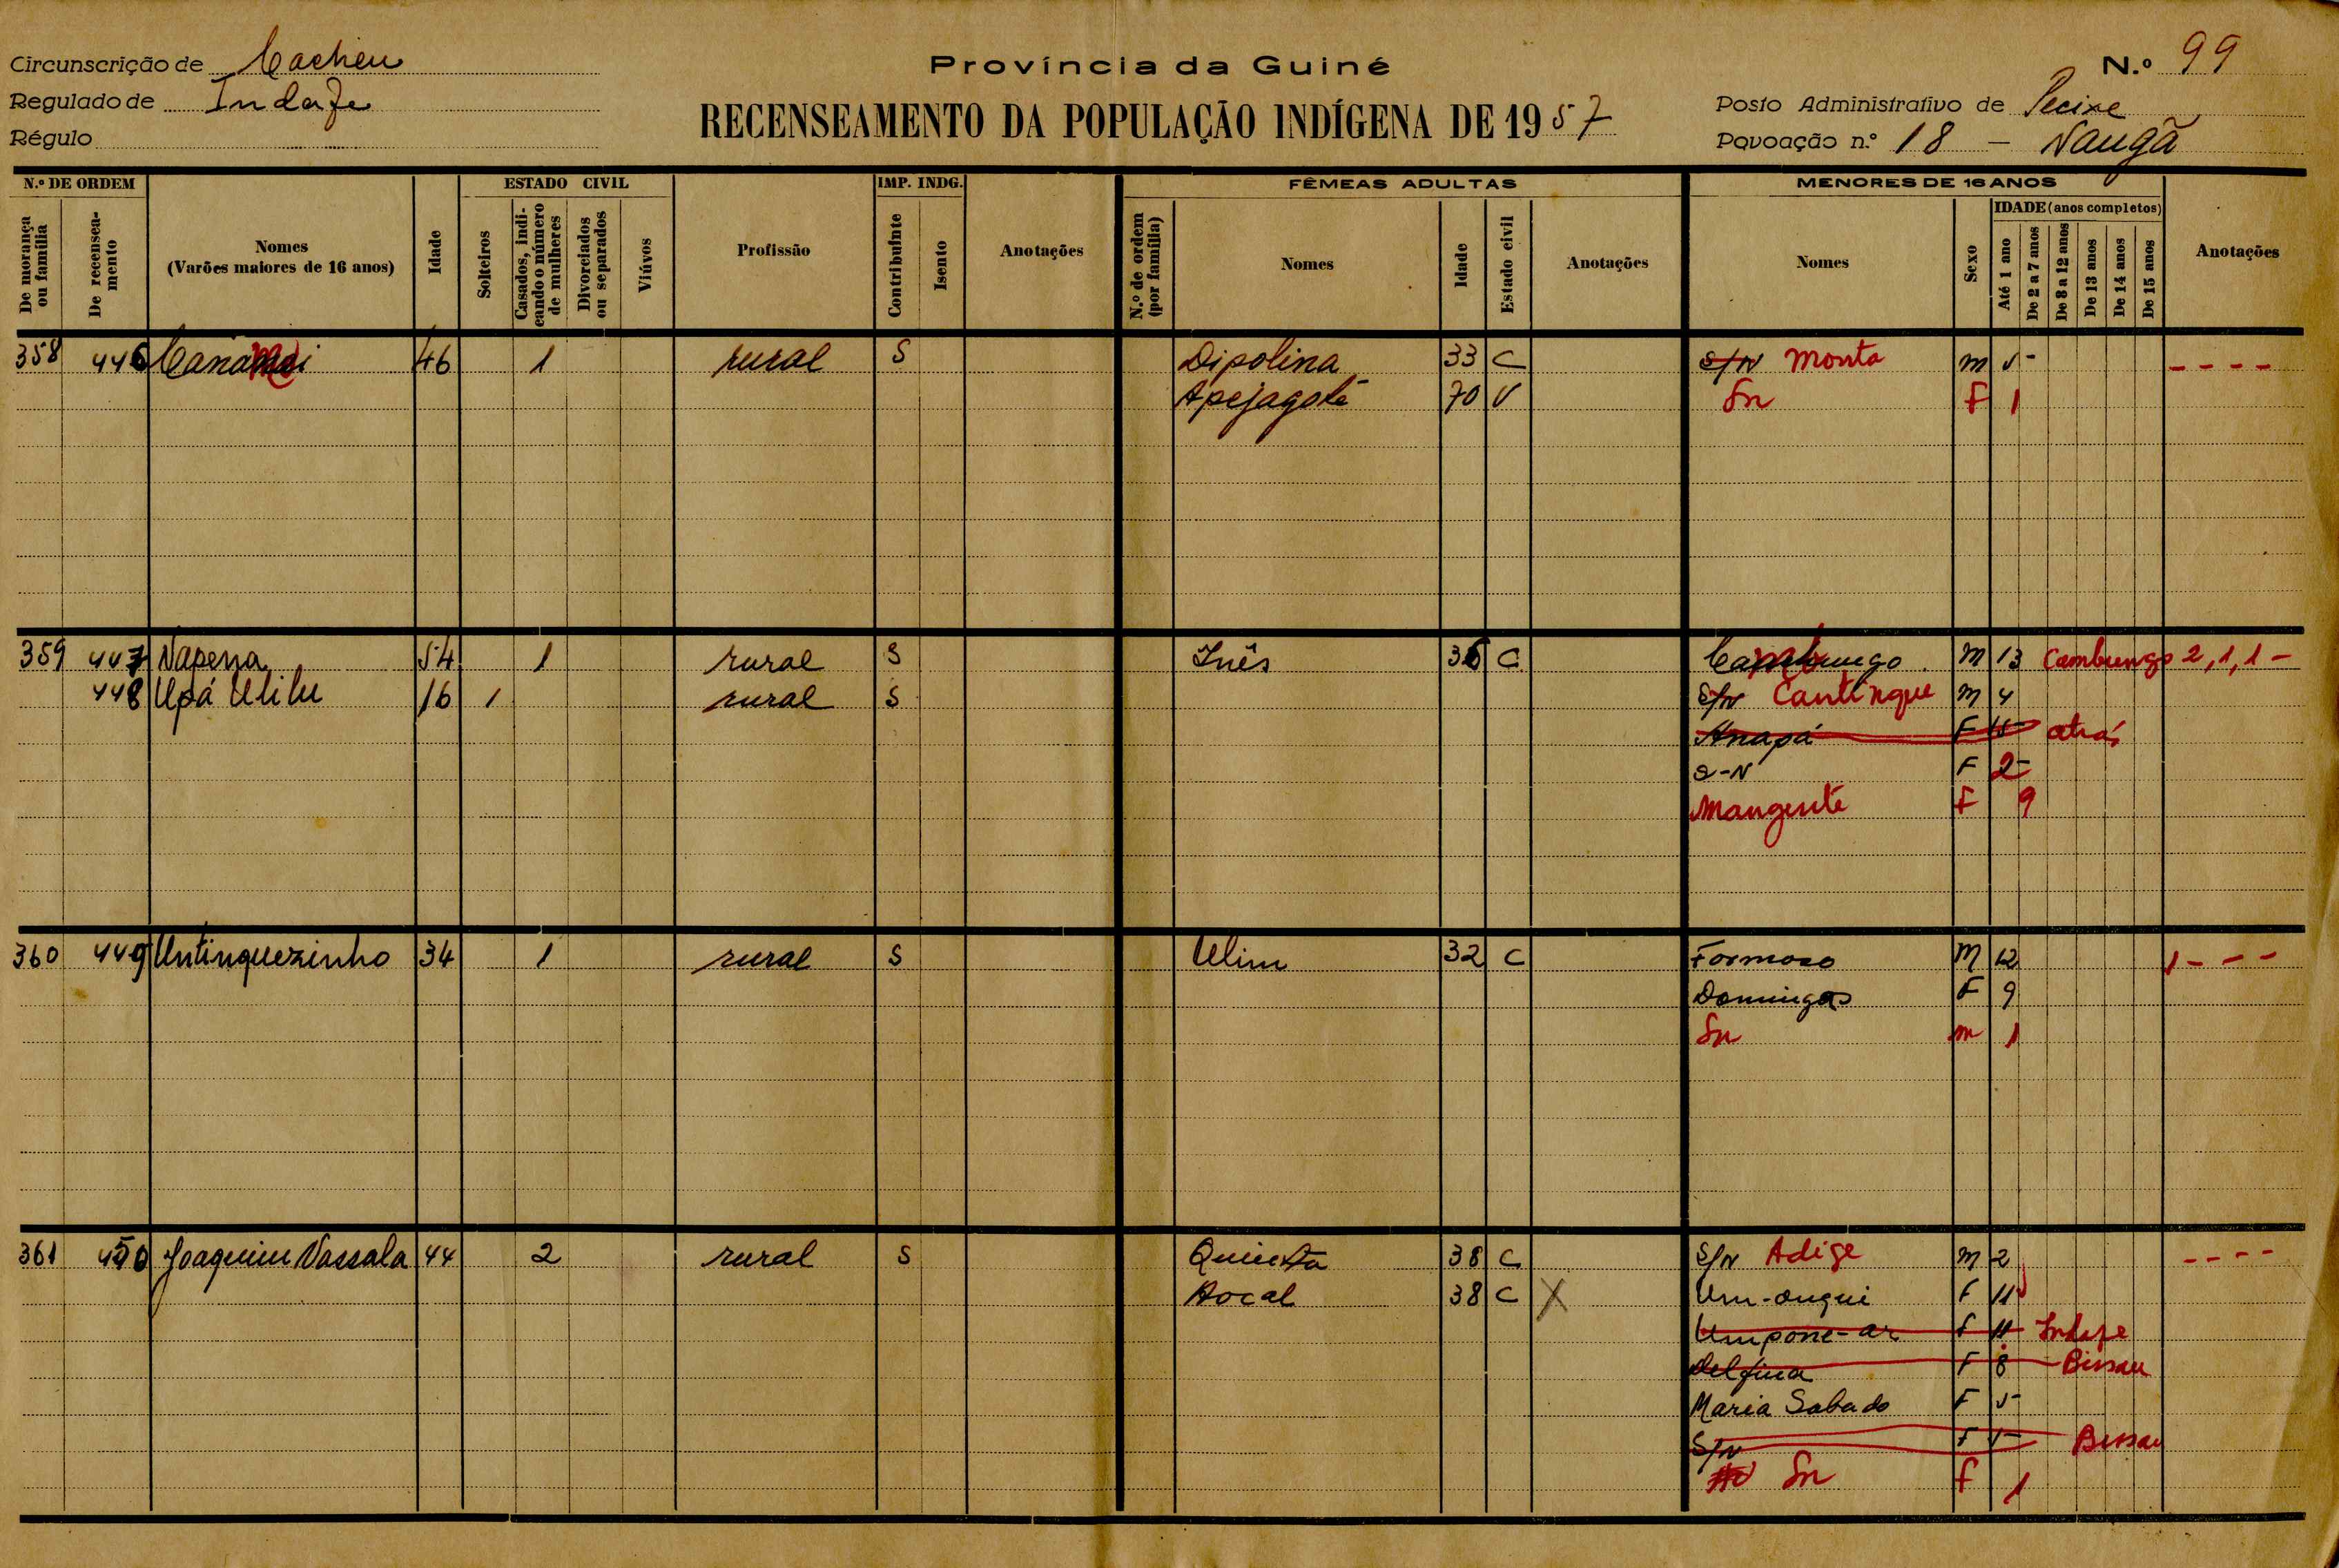 Circunscrição de Cacheu
Regulado de Indafe
Régulo
Província da Guiné
RECENSEAMENTO DA POPULAÇÃO INDÍGENA DE 1957
N.º 99
Posto Administrativo de Pecixe
Povoação n.º 18 - Naugã
N.º DE ORDEM
De morança ou família
De recenseamento
Nomes
(Varões maiores de 16 anos)
Idade
ESTADO CIVIL
Solteiros
Casados, indicando o número de mulheres
Divorciados ou separados
Viúvos
Profissão
IMP. INDG.
Contribuinte
Isento
Anotações
FÊMEAS ADULTAS
N.º de ordem (por família)
Nomes
Idade
Estado civil
Anotações
MENORES DE 16 ANOS
Nomes
Sexo
IDADE (anos completos)
Até 1 ano
De 2 a 7 anos
De 8 a 12 anos
De 13 anos
De 14 anos
De 15 anos
Anotações
358 446 46 1 rural S Dipolina 33 C S/N Monta M 5 - - - -
Apejagoté 70 V Sn F 1
359 447 Napena 54 1 rural S Inês 36 C Cambungo M 13 Cambungo 2, 1, 1 -
448 Upá Ulilu 16 1 rural S S/N Cantingue M 4
Anapá F 15 atrás
S-N F 2
Mangente F 9
360 449 Untinquezinho 34 1 rural S Ulim 32 C Formoso M 12 1 - - -
Domingas F 9
Sn M 1
361 450 Joaquim Nassala 44 2 rural S Quinta 38 C S/N Adige M 2 - - - -
Aocal 38 C X Um-ongui F 11
Umpone-ar F 11 Indafe
Delfina F 8 Bissau
Maria Sabado F 5
S/N F 5 Bissau
Sn F 1